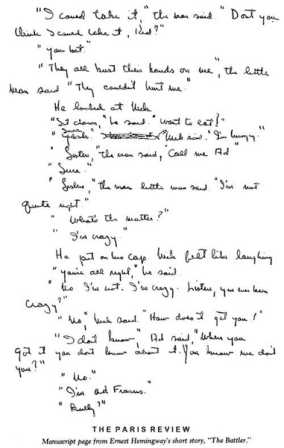 "I could take it," the man said "Dont you
think I could take it, kid?"
"you bet"
"They all bust their hands on me", the little
man said "They couldn't hurt me."
He looked at Nick
"Sit down," he said. "want to eat?"
"Sure" Nick said. "I'm hungry"
"Listen," the man said, "Call me Ad"
"Sure."
"Listen," the man little man said "I'm not
quite right"
"What's the matter?"
"I'm crazy"
He put on his cap. Nick felt like laughing
"you're all right," he said
"No I'm not. I'm crazy. Listen, you ever been
crazy?"
"No," Nick said "How does it get you?"
"I don't know," Ad said, "When you
got it you dont know about it. You know me don't
you?"
"No."
"I'm Ad Francis."
"Really?"
THE PARIS REVIEW
Manuscript page from Ernest Hemingway's short story, "The Battler."